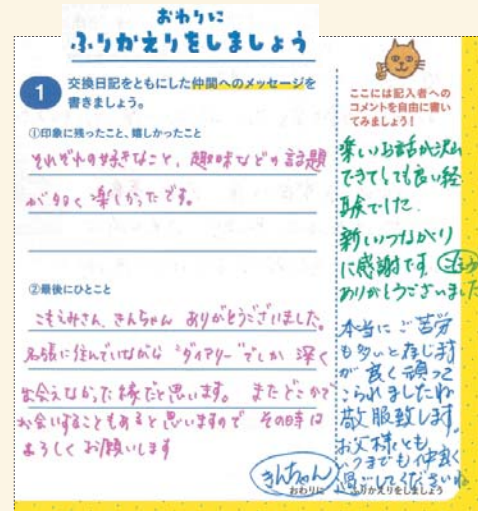 おわりに
ふりかえりをしましょう
1
交換日記をともにした仲間へのメッセージを
書きましょう。
①印象に残ったこと、嬉しかったこと
それぞれの好きなこと、趣味などの話題
が多く楽しかったです。
②最後にひとこと
こもえみさん、きんちゃん ありがとうございました。
名張に住んでいながら "ダイアリー"でしか 深く
出会えなかった縁だと思います。 またどこかで
お会いすることもあると思いますので その時は
よろしくお願いします
ここには記入者への
コメントを自由に書い
てみましょう!
楽しいお話が沢山
できてとても良い経
験でした。
新しいつながり
に感謝です
ありがとうございました
本当にご苦労
も多いと存じます
が良く頑張って
こられましたね
敬服致します
お父様とも
いつまでも仲良く
過ごしてくださいね
きんちゃん
おわりに
ふりかえりをしましょう